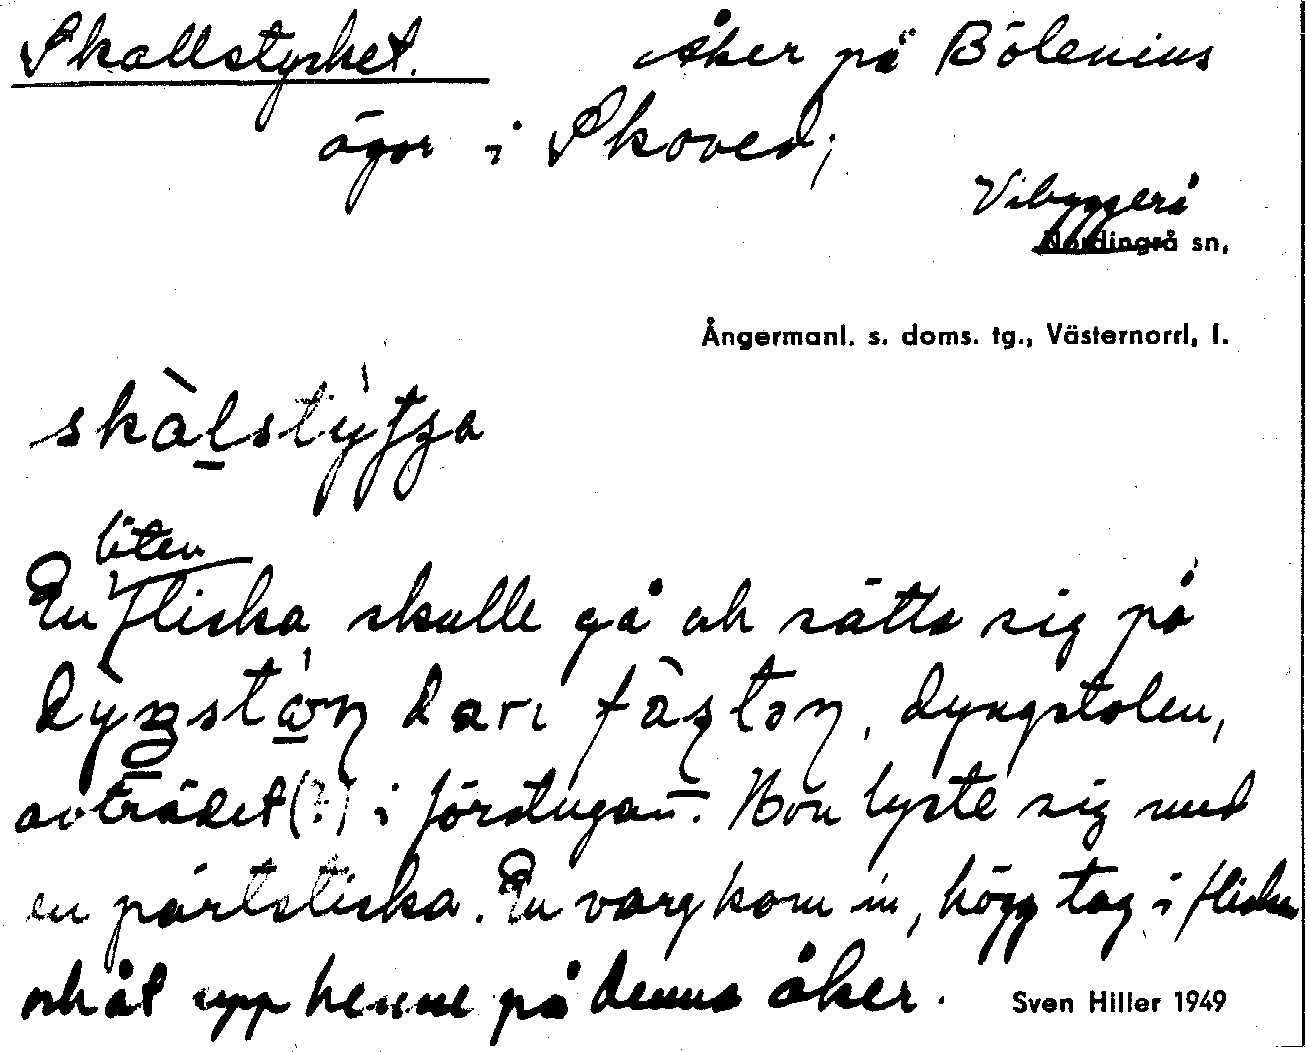 Skallstycket. Åker på Bölenius
ägor i Skoved;
Vibyggerå
Nordingrå sn,
Ångermanl. s. doms. tg., Västernorrl. l.
liten
En fliska skulle gå och sätta sig på
dyngstolen,
avträdet (?) i fördugan. Hon lyste sig med
en pärtstiska. En varg kom in, högg tag i fliskan
och åt upp henne på denna åker.
Sven Hiller 1949